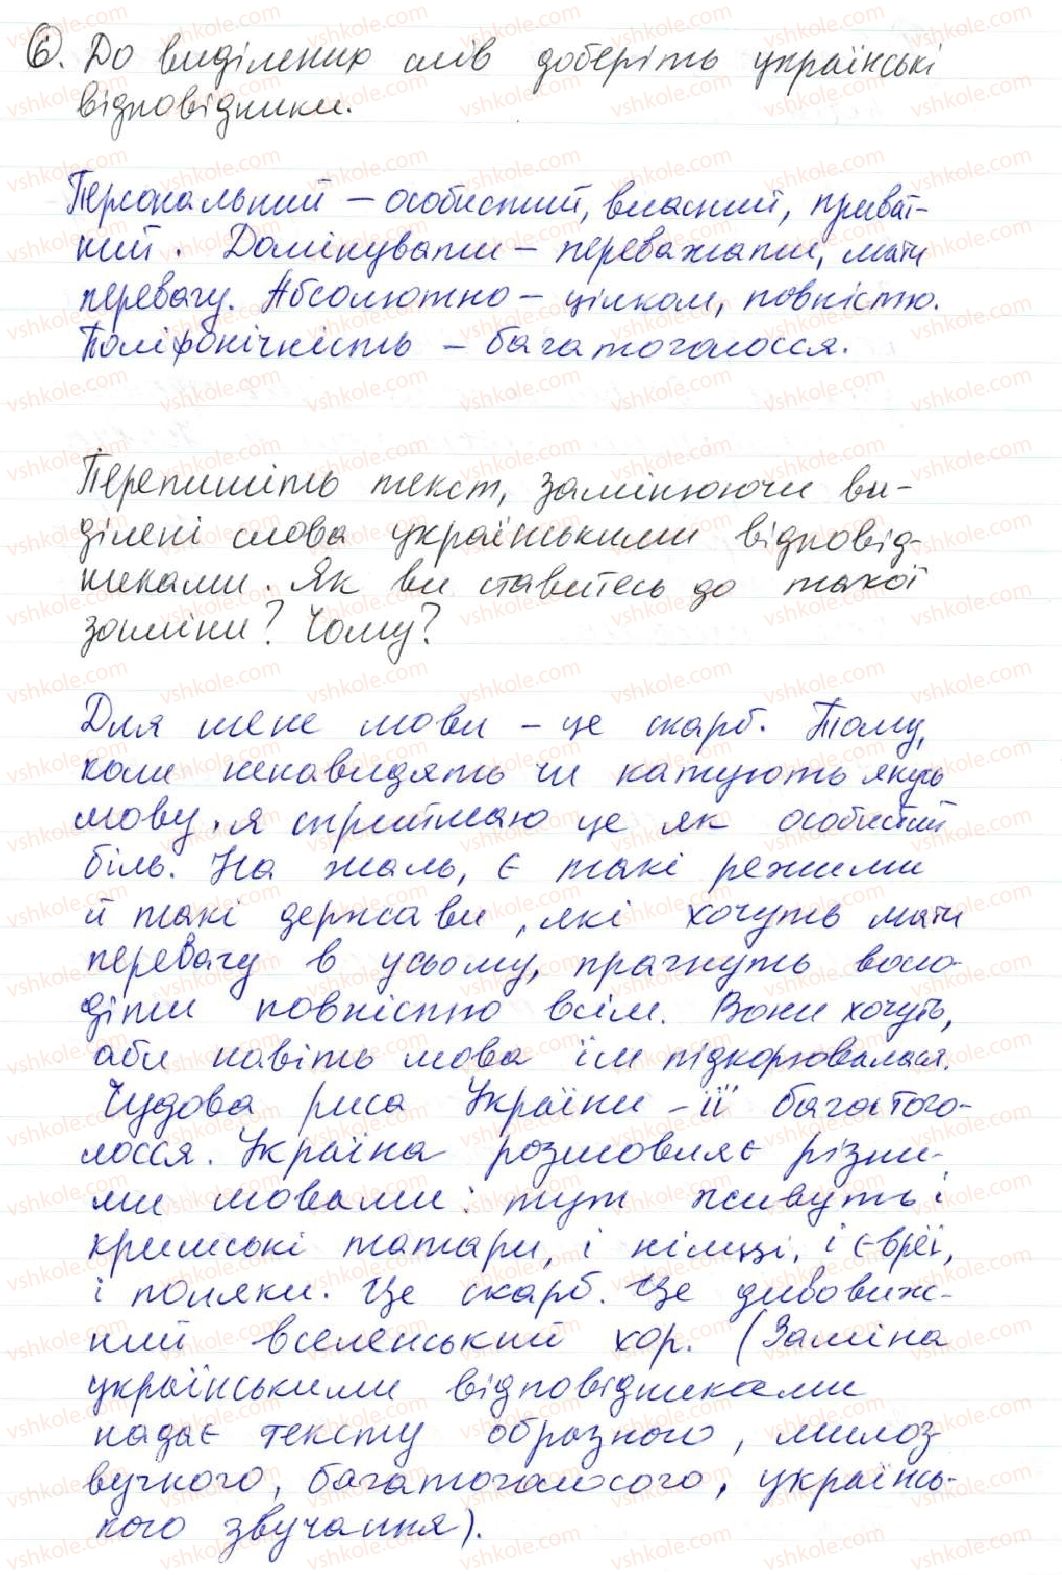 6. До виділених слів доберіть українські
відповідники.
Персональний – особистий, власний, приват-
ний. Домінувати – переважати, мати
перевагу. Абсолютно – цілком, повністю.
Поліфонічність – багатоголосся.
Перепишіть текст, замінюючи ви-
ділені слова українськими відповід-
никами. Як ви ставитесь до такої
заміни? Чому?
Для мене мови – це скарб. Тому,
коли ненавидять чи катують якусь
мову, я сприймаю це як особистий
біль. На жаль, є такі режими
й такі держави, які хочуть мати
перевагу в усьому, прагнуть воло-
діти повністю всім. Вони хочуть,
аби навіть мова їм підкорювалася.
Чудова риса України – її багатого-
лосся. Україна розмовляє різни-
ми мовами: тут живуть і
кримські татари, і німці, і євреї,
і поляки. Це скарб. Це дивовиж-
ний вселенський хор. (Заміна
українськими відповідниками
надає тексту образного, милоз
вучного, багатоголосого, українсь-
кого звучання).